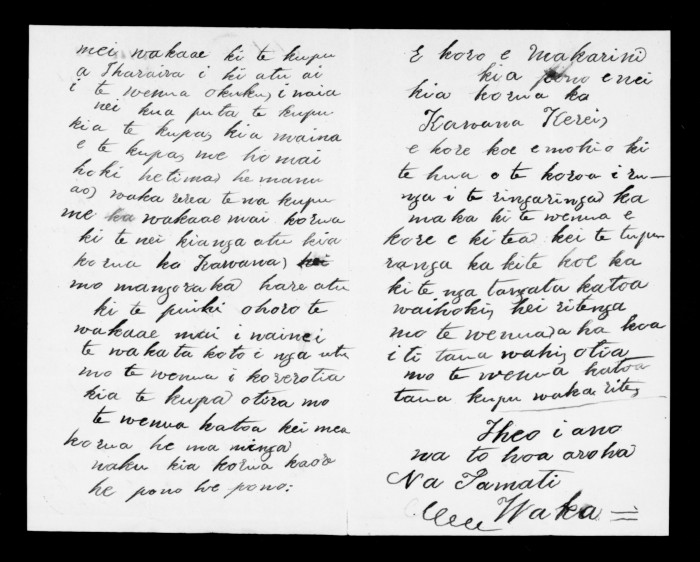 mei wakaae ki te kupu
a Tharaira i ki atu ai
i te wenua okuku, i naia
nei kua puta te kupu
kia te kupa, kia maina
e te kupa, me ho mai
hoki he tima, he manu
ao, waka rerea te na kupu
me ka wakaae mai korua
ki te nei kianga atu kia
korua ka Kawana, kei
mo mangoraka hare atu
ki te piriki ohoro te
wakaae mai i nainei
te wakata koto i nga utu
mo te wenua i korerotia
kia te kupa otira mo
te wenua katoa kei mea
korua he ma minga
naku kia korua kaore
he pono he pono:
E koro e Makarini
kia ano e nei
kia korua ka
Kawana Kerei,
e kore koe e mohio ki
te hua o te korva i ru-
nga i te ringaringa ka
maka ki te wenua e
kore e kitea kei te tupu
ranga ka kite koe ka
kite nga tangata katoa
waihoki, hei ritenga
mo te wenua, aha koa
iti tana wahi, otia
mo te wenua katoa
tana kupu waka rite,
Theo i ano
na to hoa aroha
Na Tamati
Waka